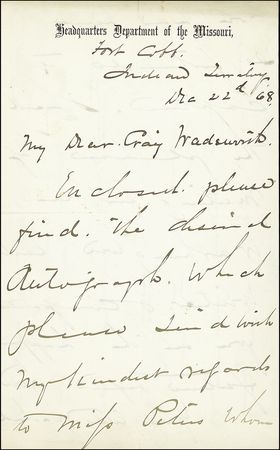 Headquarters Department of the Missouri,
Fort Cobb.
Indian Territory
Dec 22d 68,
My Dear Craig Wadsworth.
Enclosed please
find the desired
Autograph. Which
please send with
my kindest regards
to Miss Peters whom